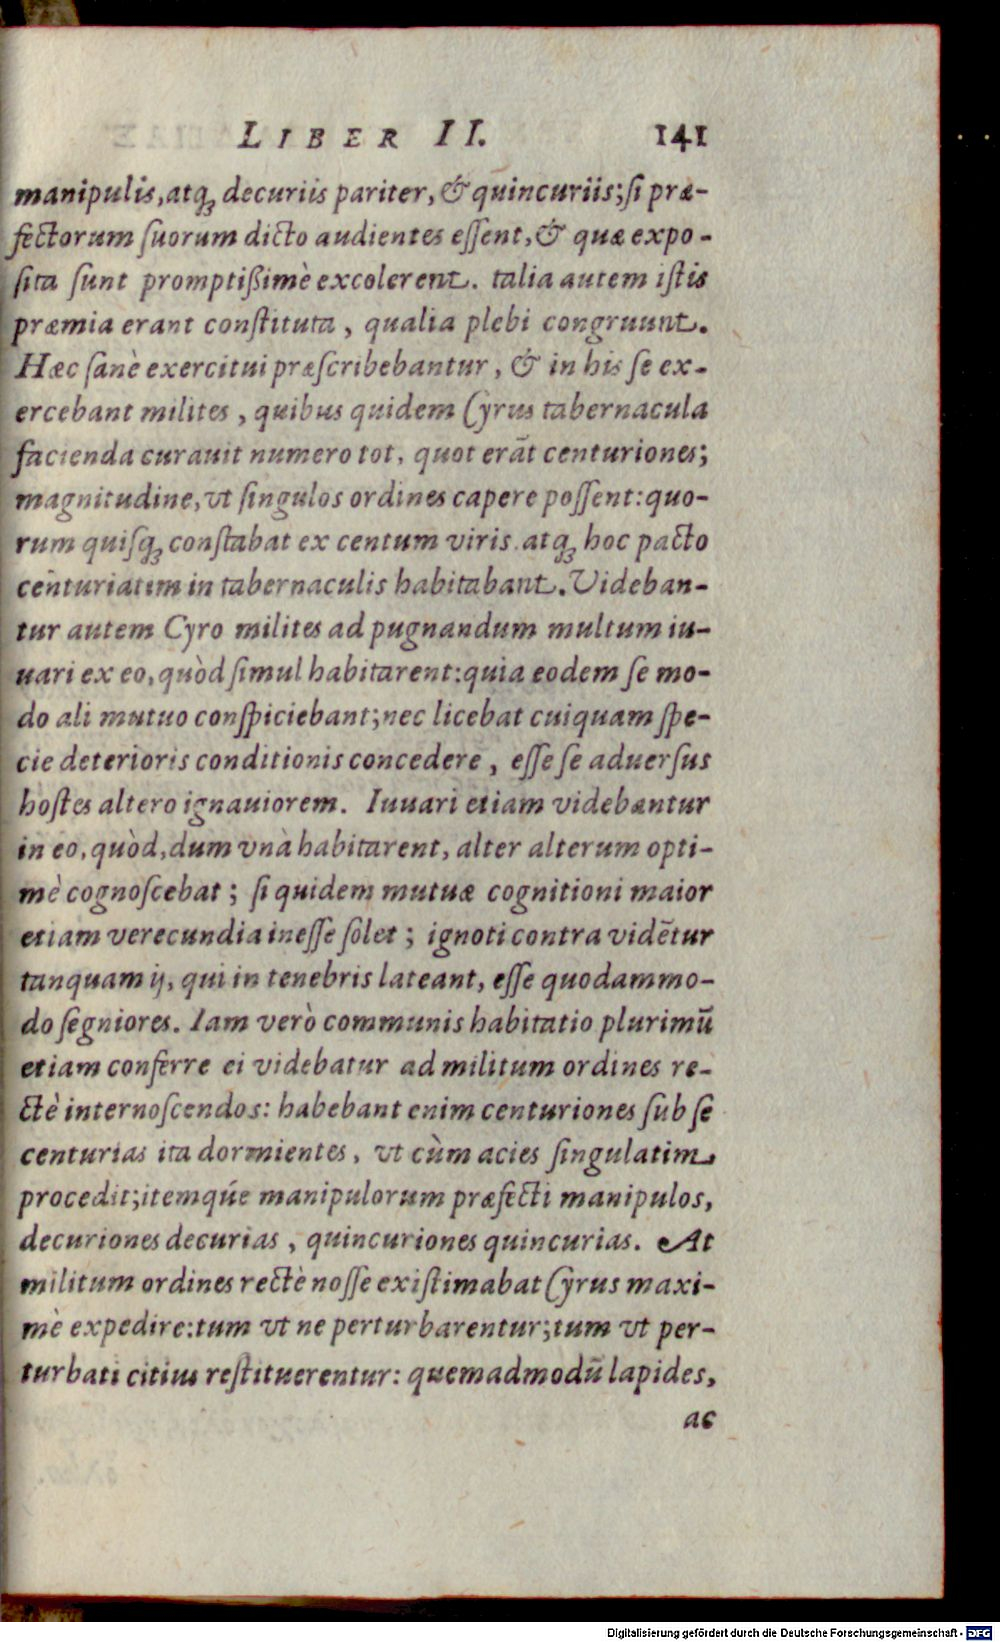 LIBER II. 141
manipulis, atq́; decuriis pariter, & quincuriis; si præ-
fectorum suorum dicto audientes essent, & quæ expo-
sita sunt promptißimè excolerent. talia autem istis
præmia erant constituta, qualia plebi congruunt.
Hæc sanè exercitui præscribebantur, & in his se ex-
ercebant milites, quibus quidem Cyrus tabernacula
facienda curauit numero tot, quot erāt centuriones;
magnitudine, vt singulos ordines capere possent: quo-
rum quisq; constabat ex centum viris. atq; hoc pacto
centuriatim in tabernaculis habitabant. Videban-
tur autem Cyro milites ad pugnandum multum iu-
uari ex eo, quòd simul habitarent: quia eodem se mo-
do ali mutuo conspiciebant; nec licebat cuiquam spe-
cie deterioris conditionis concedere, esse se aduersus
hostes altero ignauiorem. Iuuari etiam videbantur
in eo, quòd, dum vnà habitarent, alter alterum opti-
mè cognoscebat; si quidem mutuæ cognitioni maior
etiam verecundia inesse solet; ignoti contra vidētur
tanquam ij, qui in tenebris lateant, esse quodammo-
do segniores. Iam verò communis habitatio plurimū
etiam conferre ei videbatur ad militum ordines re-
ctè internoscendos: habebant enim centuriones sub se
centurias ita dormientes, vt cùm acies singulatim
procedit; itemq́ue manipulorum præfecti manipulos,
decuriones decurias, quincuriones quincurias. At
militum ordines rectè nosse existimabat Cyrus maxi-
mè expedire: tum vt ne perturbarentur; tum vt per-
turbati citius restituerentur: quemadmodū lapides,
ac
Digitalisierung gefördert durch die Deutsche Forschungsgemeinschaft - DFG